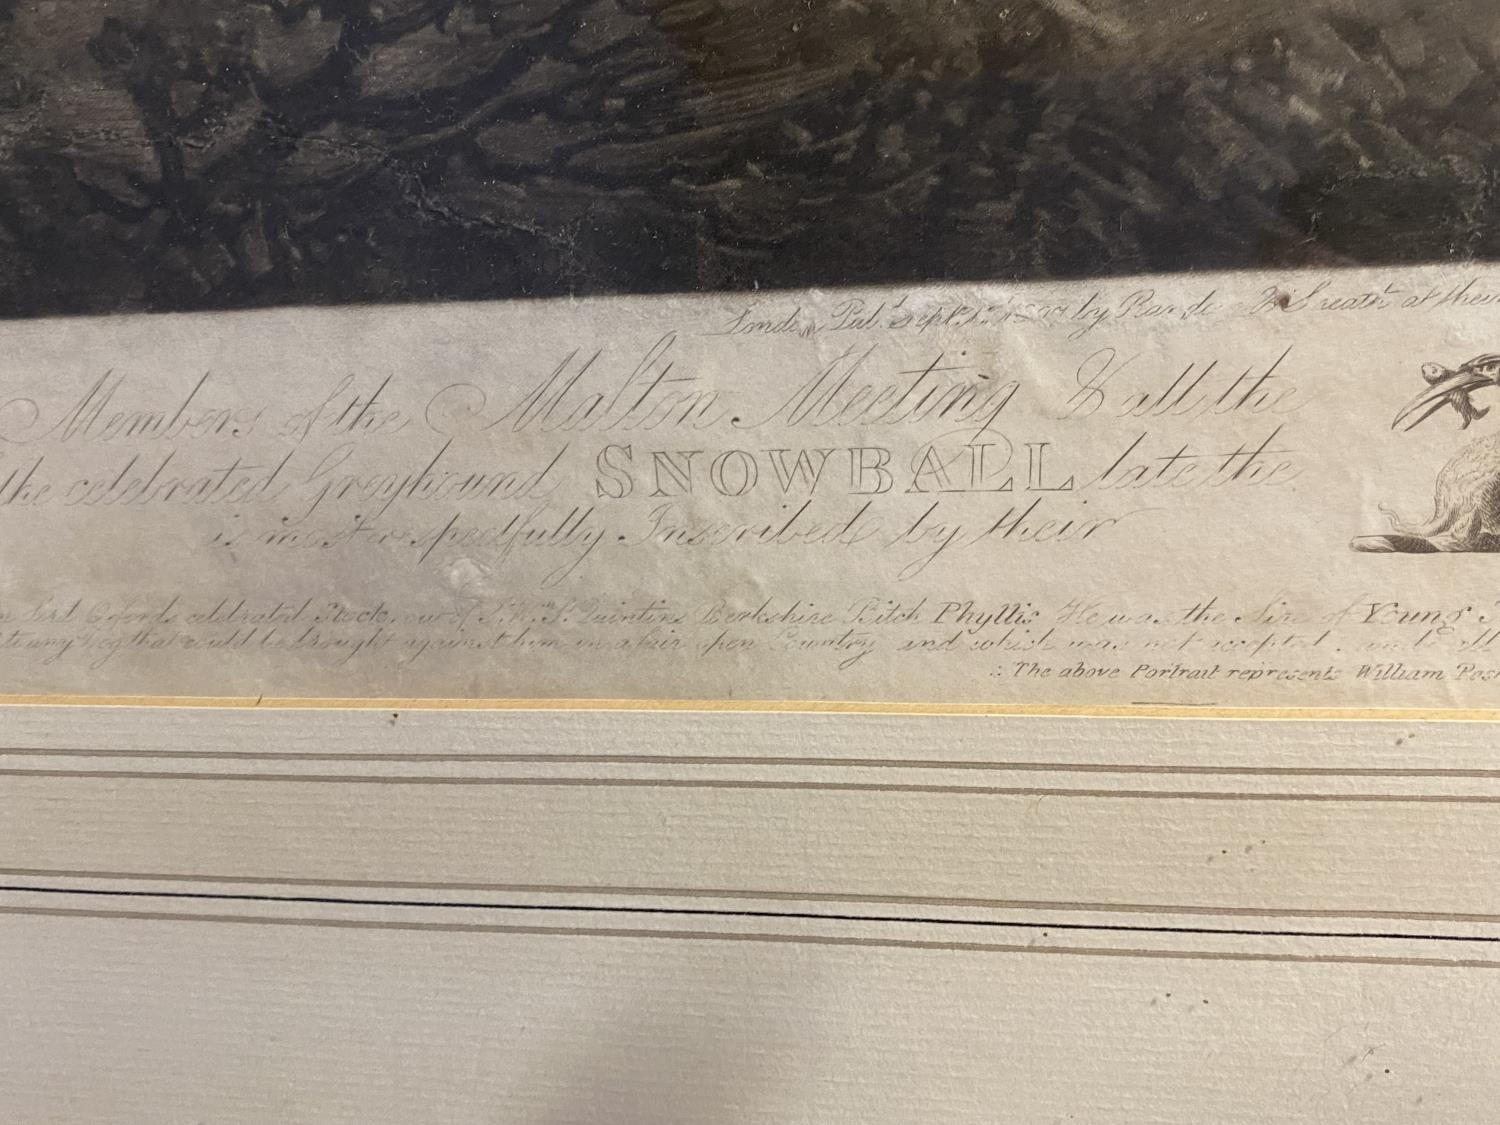 Pub.d Sept.r by at their
Members of the Malton Meeting & all the
the celebrated Greyhound SNOWBALL late the
is most respectfully Inscribed by their
Lord Orfords celebrated Stock, out of Quintins Berkshire Bitch Phyllis. He was the Sire of Young
any Dog that could be brought against him in a fair open Country and which was not accepted.
The above Portrait represents William